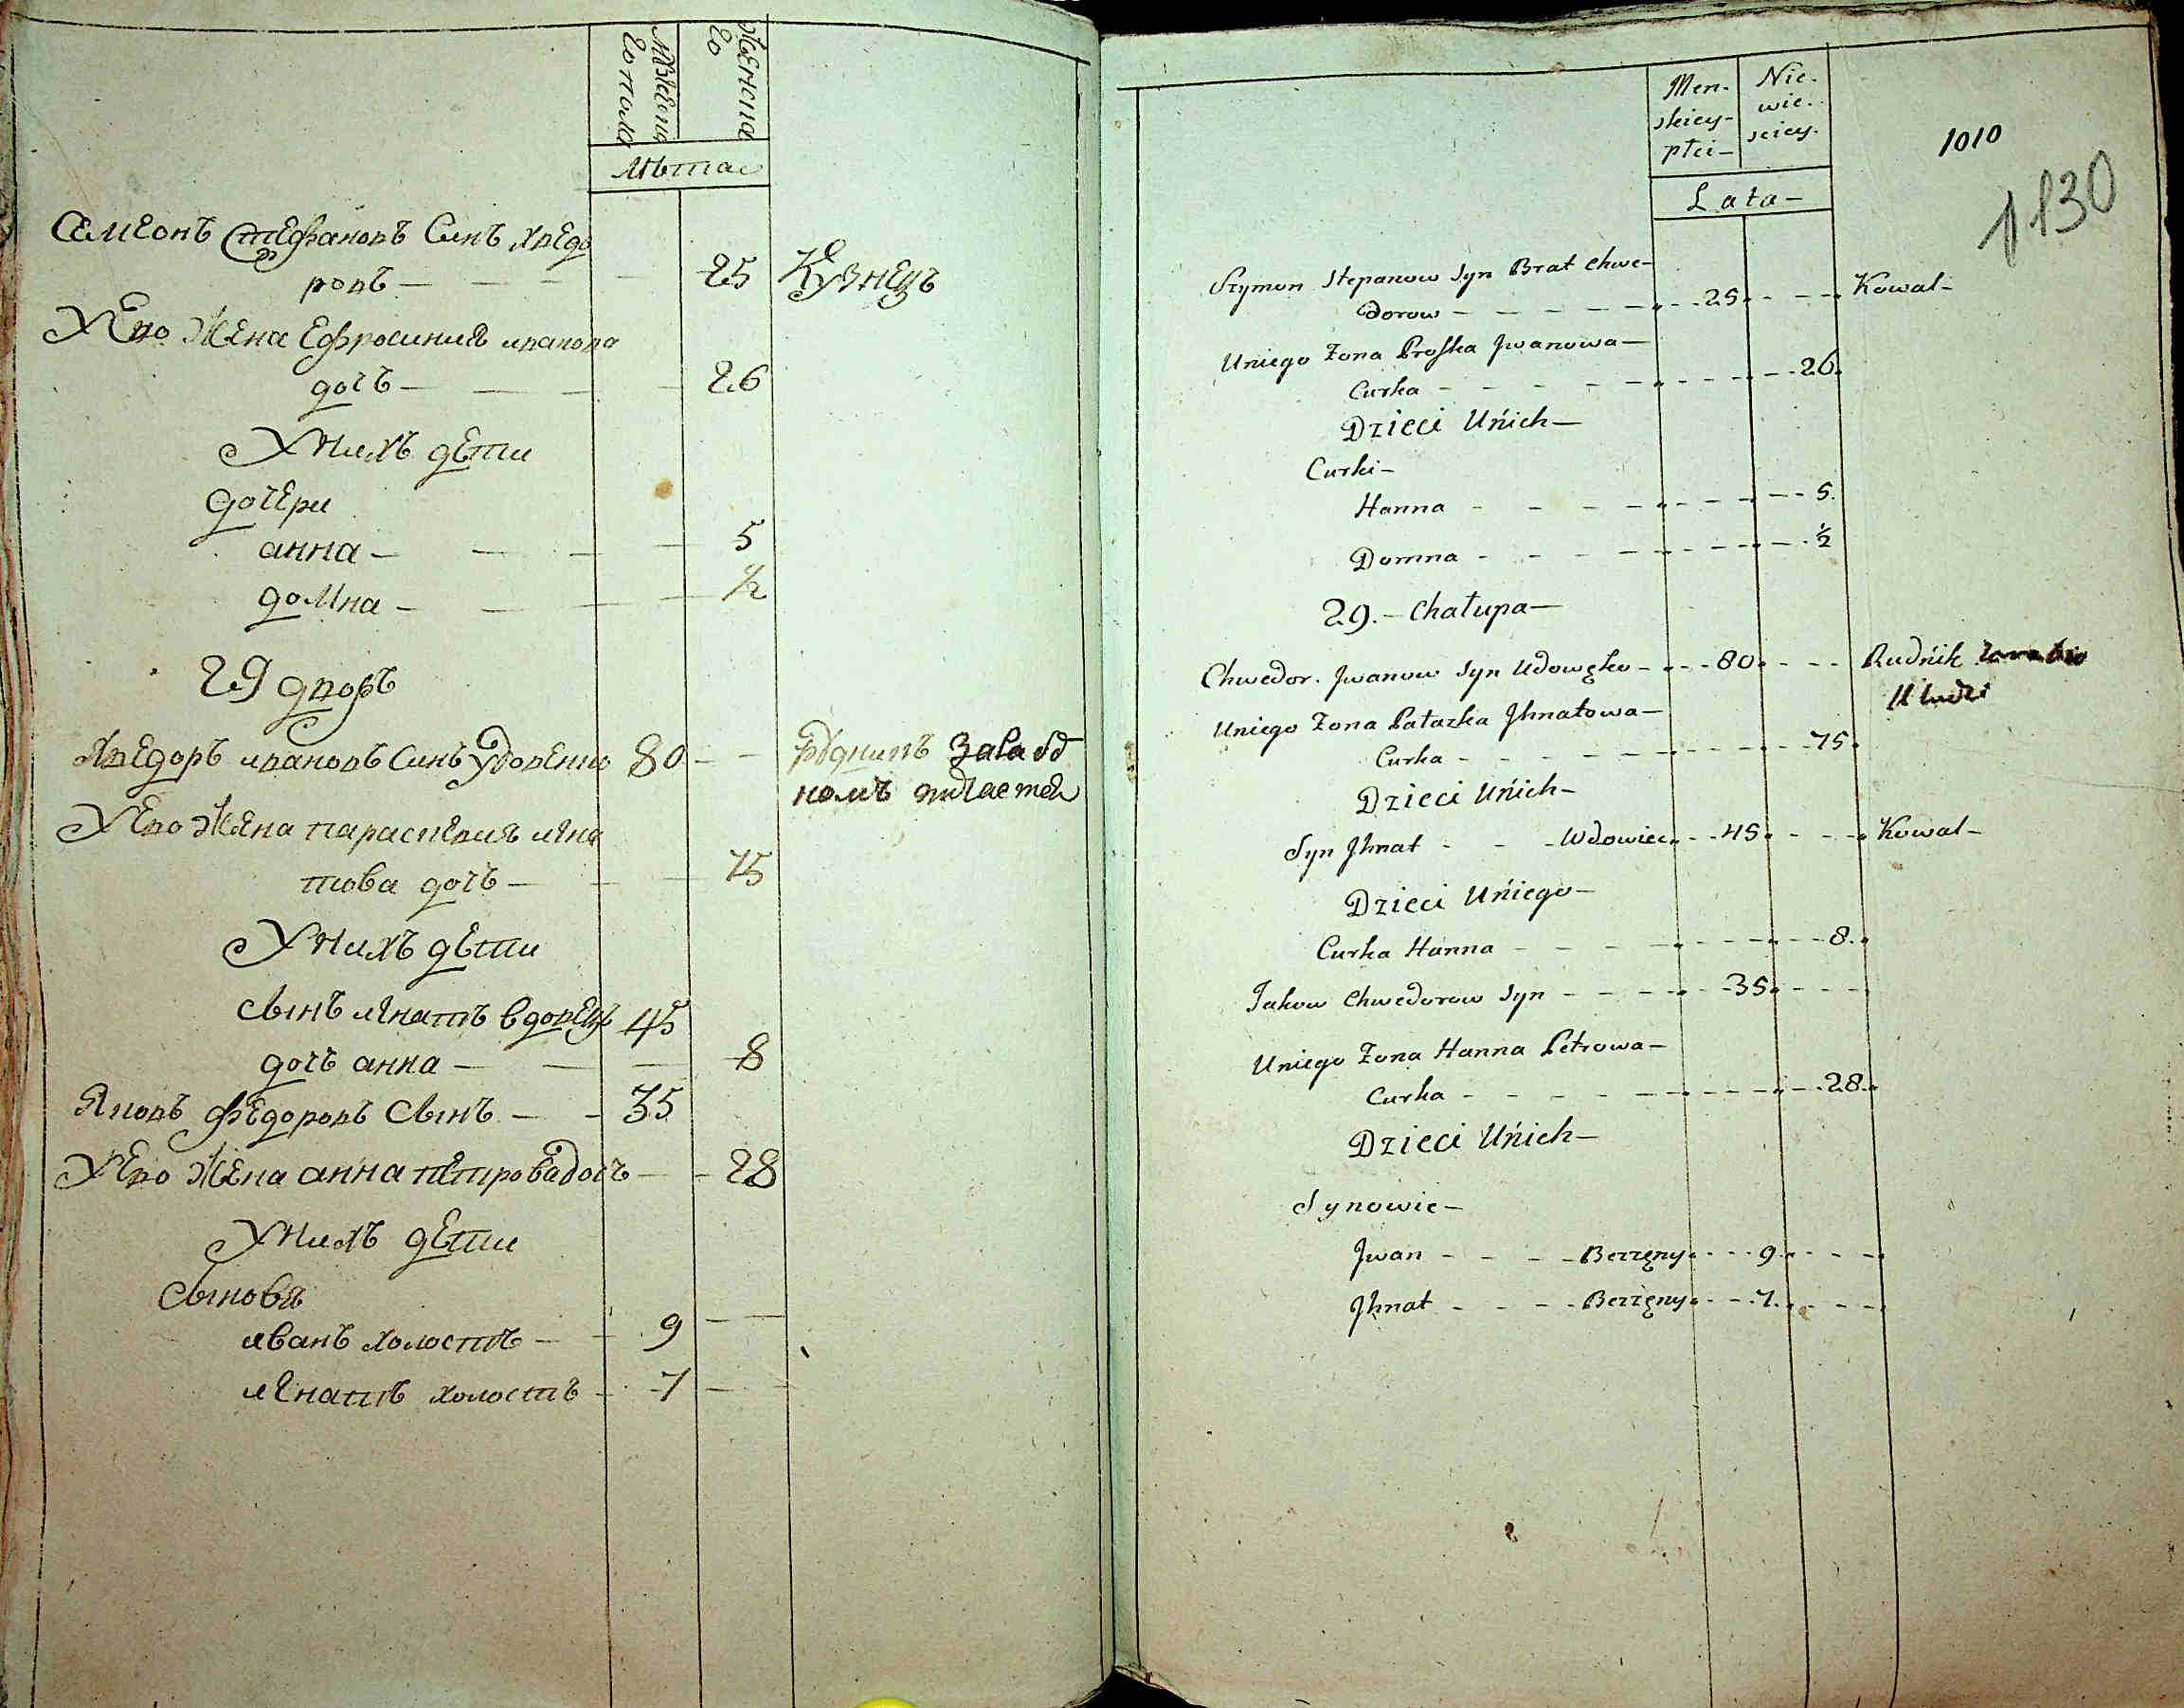 Мужеска
го пола
Женска
го
Лѣта
Самсонъ Стефановъ Синъ хведо
ровъ — — — 25 Кузнецъ
У Его Жена Ефросиния иванова
дочъ — — — 26
У нихъ дети
дочери
анна — — — 5
домна — — — 1/2
29 дворъ
Хведоръ ивановъ Синъ Удовенко 80 — — рудникъ
комъ питается
У Его Жена параскевия игна
това дочъ — — — 75
У нихъ дети
сынъ игнатъ вдовецъ 45
дочъ анна — — — 8
Яковъ федоровъ Сынъ — — 35
У Его Жена анна петровадочъ — — 28
У нихъ дети
Сыновя
иванъ холостъ — — 9 — —
игнатъ холостъ — 7 — —
Men-
skiey-
płci—
Nie-
wie-
sciey.
1010
1130
Lata—
Szymon Stepanow Syn Brat Chwe—
dorow — — — — — 25 — — — Kowal—
Uniego Zona Proska Jwanowa—
Curka — — — — — — — — 26.
Dzieci Unich—
Curki—
Hanna — — — — — — — 5.
Domna — — — — — — — 1/2
29.— Chałupa—
Chwedor. Jwanow Syn Udowęko — — 80 — — — Rudnik
Uniego Zona Parazka Jhnatowa—
Curka — — — — — — — — 75.
Dzieci Unich—
Syn Jhnat — — — Wdowiec — — 45 — — — Kowal—
Dzieci Uniego—
Curka Hanna — — — — — — — 8.
Jakow Chwedorow Syn — — — — 35 — — —
Uniego Zona Hanna Petrowa—
Curka — — — — — — — — 28.
Dzieci Unich—
Synowie—
Jwan — — — — Bezzęny — — 9. — — —
Jhnat — — — — Bezzęny — — 7. — — —